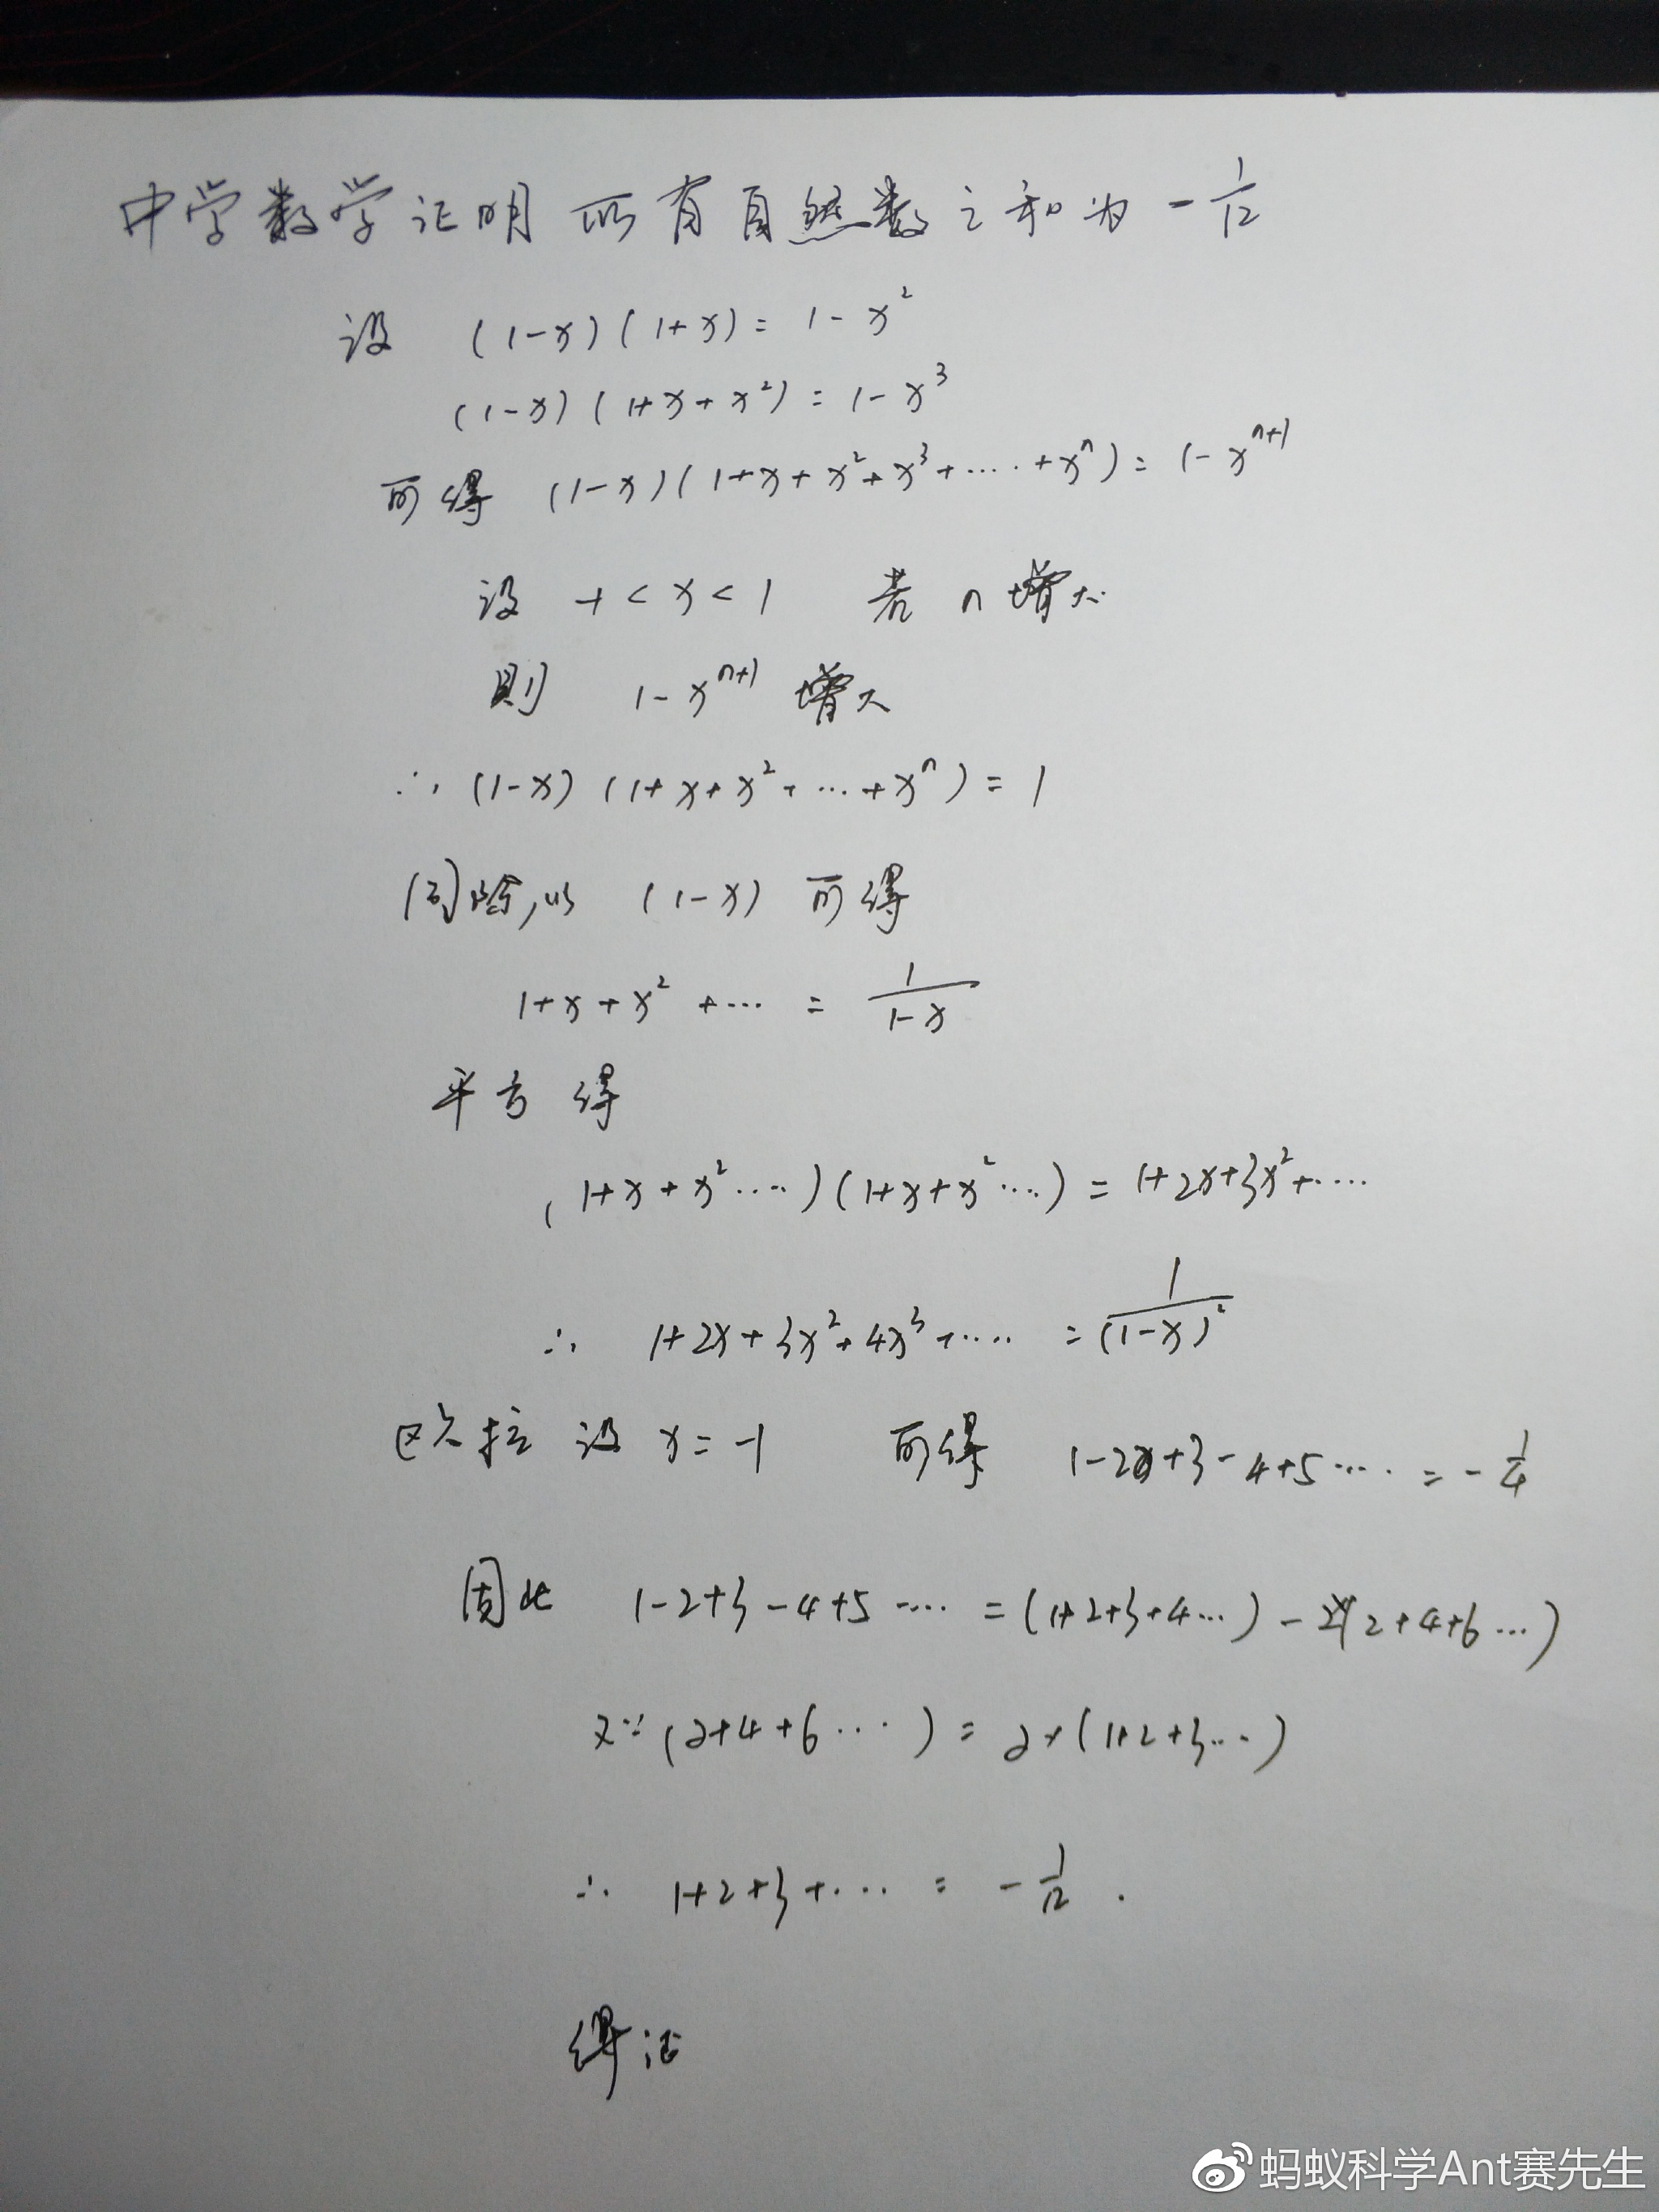 中学数学证明 所有自然数之和为 -1/12
设 (1-x)(1+x)= 1-x²
(1-x)(1+x+x²)=1-x³
可得 (1-x)(1+x+x²+x³+.....+xⁿ)=1-xⁿ⁺¹
设 -1<x<1 若 n增大
则 1-xⁿ⁺¹ 增大
∴ (1-x)(1+x+x²+...+xⁿ)=1
同除以 (1-x) 可得
1+x+x²+... = 1/(1-x)
平方得
(1+x+x²....)(1+x+x²....)=1+2x+3x²+....
∴ 1+2x+3x²+4x³+..... =1/(1-x)²
欧拉设 x=-1 可得 1-2+3-4+5.... = -1/4
因此 1-2+3-4+5.... =(1+2+3+4...)-2(2+4+6...)
又∵(2+4+6...)=2×(1+2+3...)
∴ 1+2+3+... = -1/12.
得证
蚂蚁科学Ant赛先生